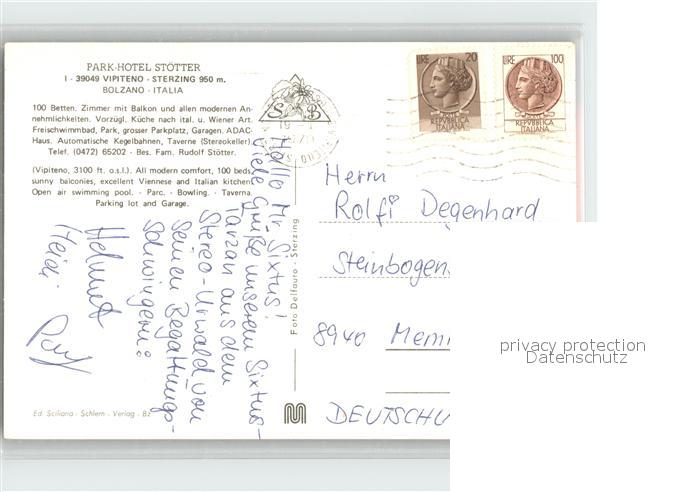 PARK-HOTEL STÖTTER
I - 39049 VIPITENO - STERZING 950 m.
BOLZANO - ITALIA
100 Betten. Zimmer mit Balkon und allen modernen An-
nehmlichkeiten. Vorzügl. Küche nach ital. u. Wiener Art.
Freischwimmbad, Park, grosser Parkplatz, Garagen. ADAC-
Haus. Automatische Kegelbahnen, Taverne (Stereokeller).
Telef. (0472) 65202 - Bes. Fam. Rudolf Stötter.
(Vipiteno, 3100 ft. o.s.l.). All modern comfort, 100 beds,
sunny balconies, excellent Viennese and Italian kitchen.
Open air swimming pool. - Parc. - Bowling. - Taverna.
Parking lot and Garage.
Hallo Mr. Sixtus!
Viele Grüße unserem Sixtus-
Tarzan aus dem
Stereo-Urwald von
seinen Begattungs-
schwingern:
Helmut
Heidi
Ed. Sciliana - Schlern - Verlag - Bz
Foto Delfauro - Sterzing
S B
LIRE 20
REPVBBLICA
ITALIANA
LIRE 100
REPVBBLICA
ITALIANA
Herrn
Rolfi Degenhard
Steinbogen
8940 Memi
DEUTSCH
privacy protection
Datenschutz